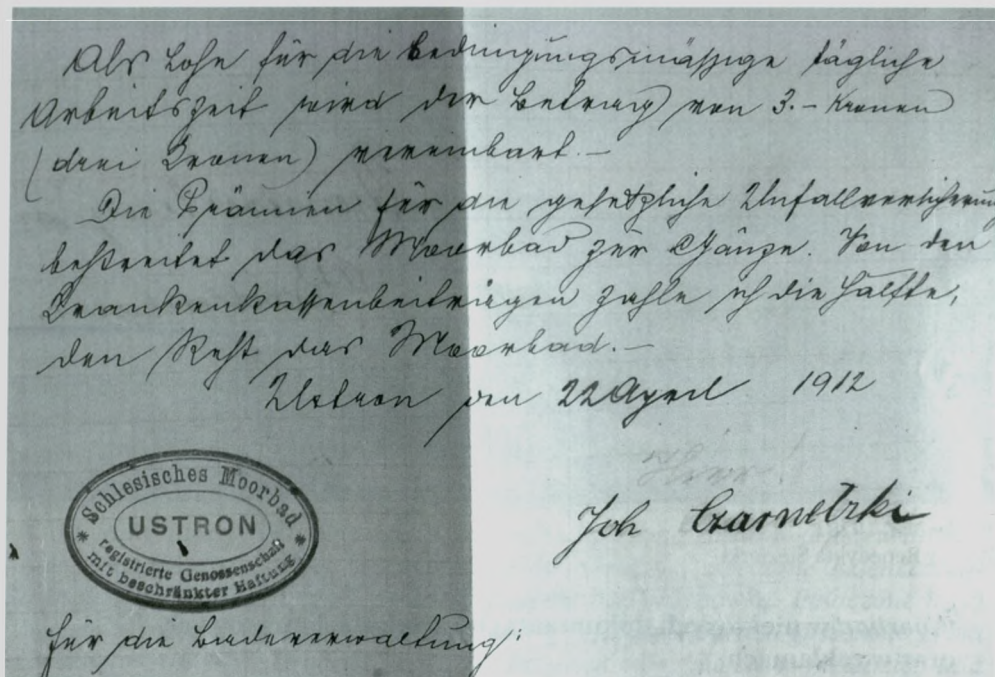 Als Lohn für die bedingungsmässige tägliche
Arbeitszeit wird der Betrag von 3.- Kronen
(drei Kronen) vereinbart.-
Die Prämien für die gesetzliche Unfallversicherung
bestreitet das Moorbad zur Gänze. Von den
Krankenkassenbeiträgen zahle ich die Hälfte,
den Rest das Moorbad.-
Ustron den 22 April 1912
Schlesisches Moorbad
USTRON
registrierte Genossenschaft
mit beschränkter Haftung
Joh Czarnetzki
für die Badeverwaltung: